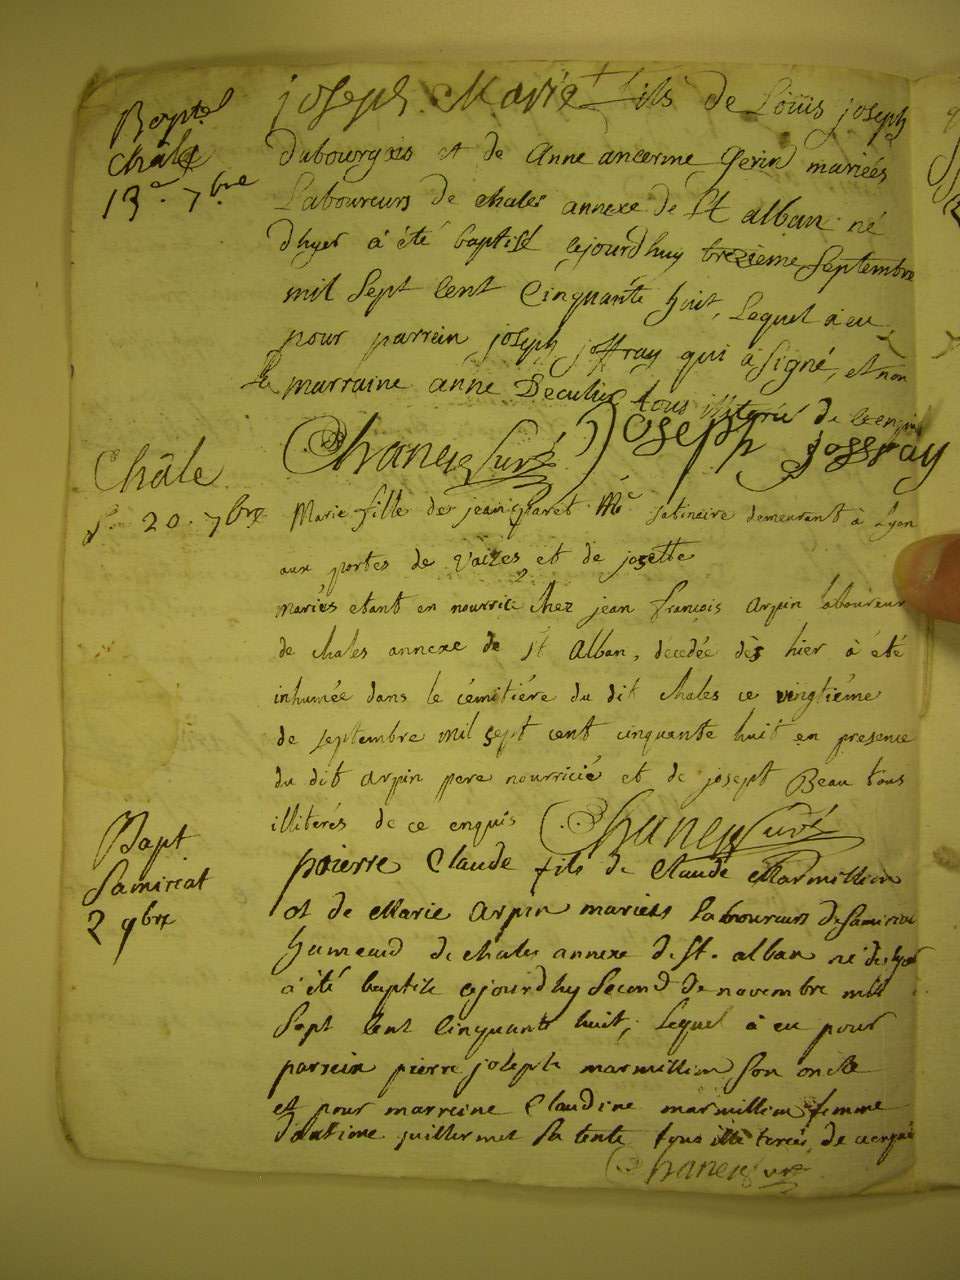 Bapt
Châle
13e 7bre
joseph Marie fils de Loüis joseph
dubourgxis et de anne ancerme Gerin mariés
Laboureurs de chales annexe de St alban né
dhyer à été baptisé cejourdhuy treizieme septembre
mil sept cent cinquante huit, Lequel à eu
pour parrein joseph joffray qui à signé, et non
La marraine anne Deculiex tous de
Chaney Curé joseph joffray
Châle
20. 7bre
Marie fille de jean Me satinaire demeurant à Lyon
aux portes de Vaizes et de josette
mariés etant en nourrice chez jean françois arpin laboureur
de chales annexe de St Alban, décedée dès hier à été
inhumée dans le cémitiére du dit chales ce vingtiéme
de septembre mil sept cent cinquante huit en presence
du dit arpin pere nourricié et de josept Beau tous
illiterés de ce enquis Chaney Curé
Bapt
Samiriat
2 9bre
pierre Claude fils de Claude Marmillion
et de Marie arpin mariés Laboureurs de Samiriat
hameaud de chales annexe de St. alban né dhyer
à été baptisé cejourdhy second de novembre mil
sept cent cinquante huit, Lequel à eu pour
parrein pierre joseph marmillion son oncle
et pour marreine Claudine marmillion femme
dantione juillermet sa tente tous illiterés de ce enquis
Chaney Curé